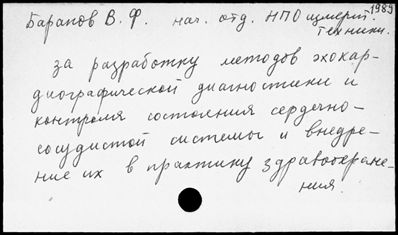 Баранов В. Ф. нач. отд. НПО измерит. 1989
техники.
за разработку методов эхокар-
диографической диагностики и
контроля состояния сердечно-
сосудистой системы и внедре-
ние их в практику здравоохране-
ния.